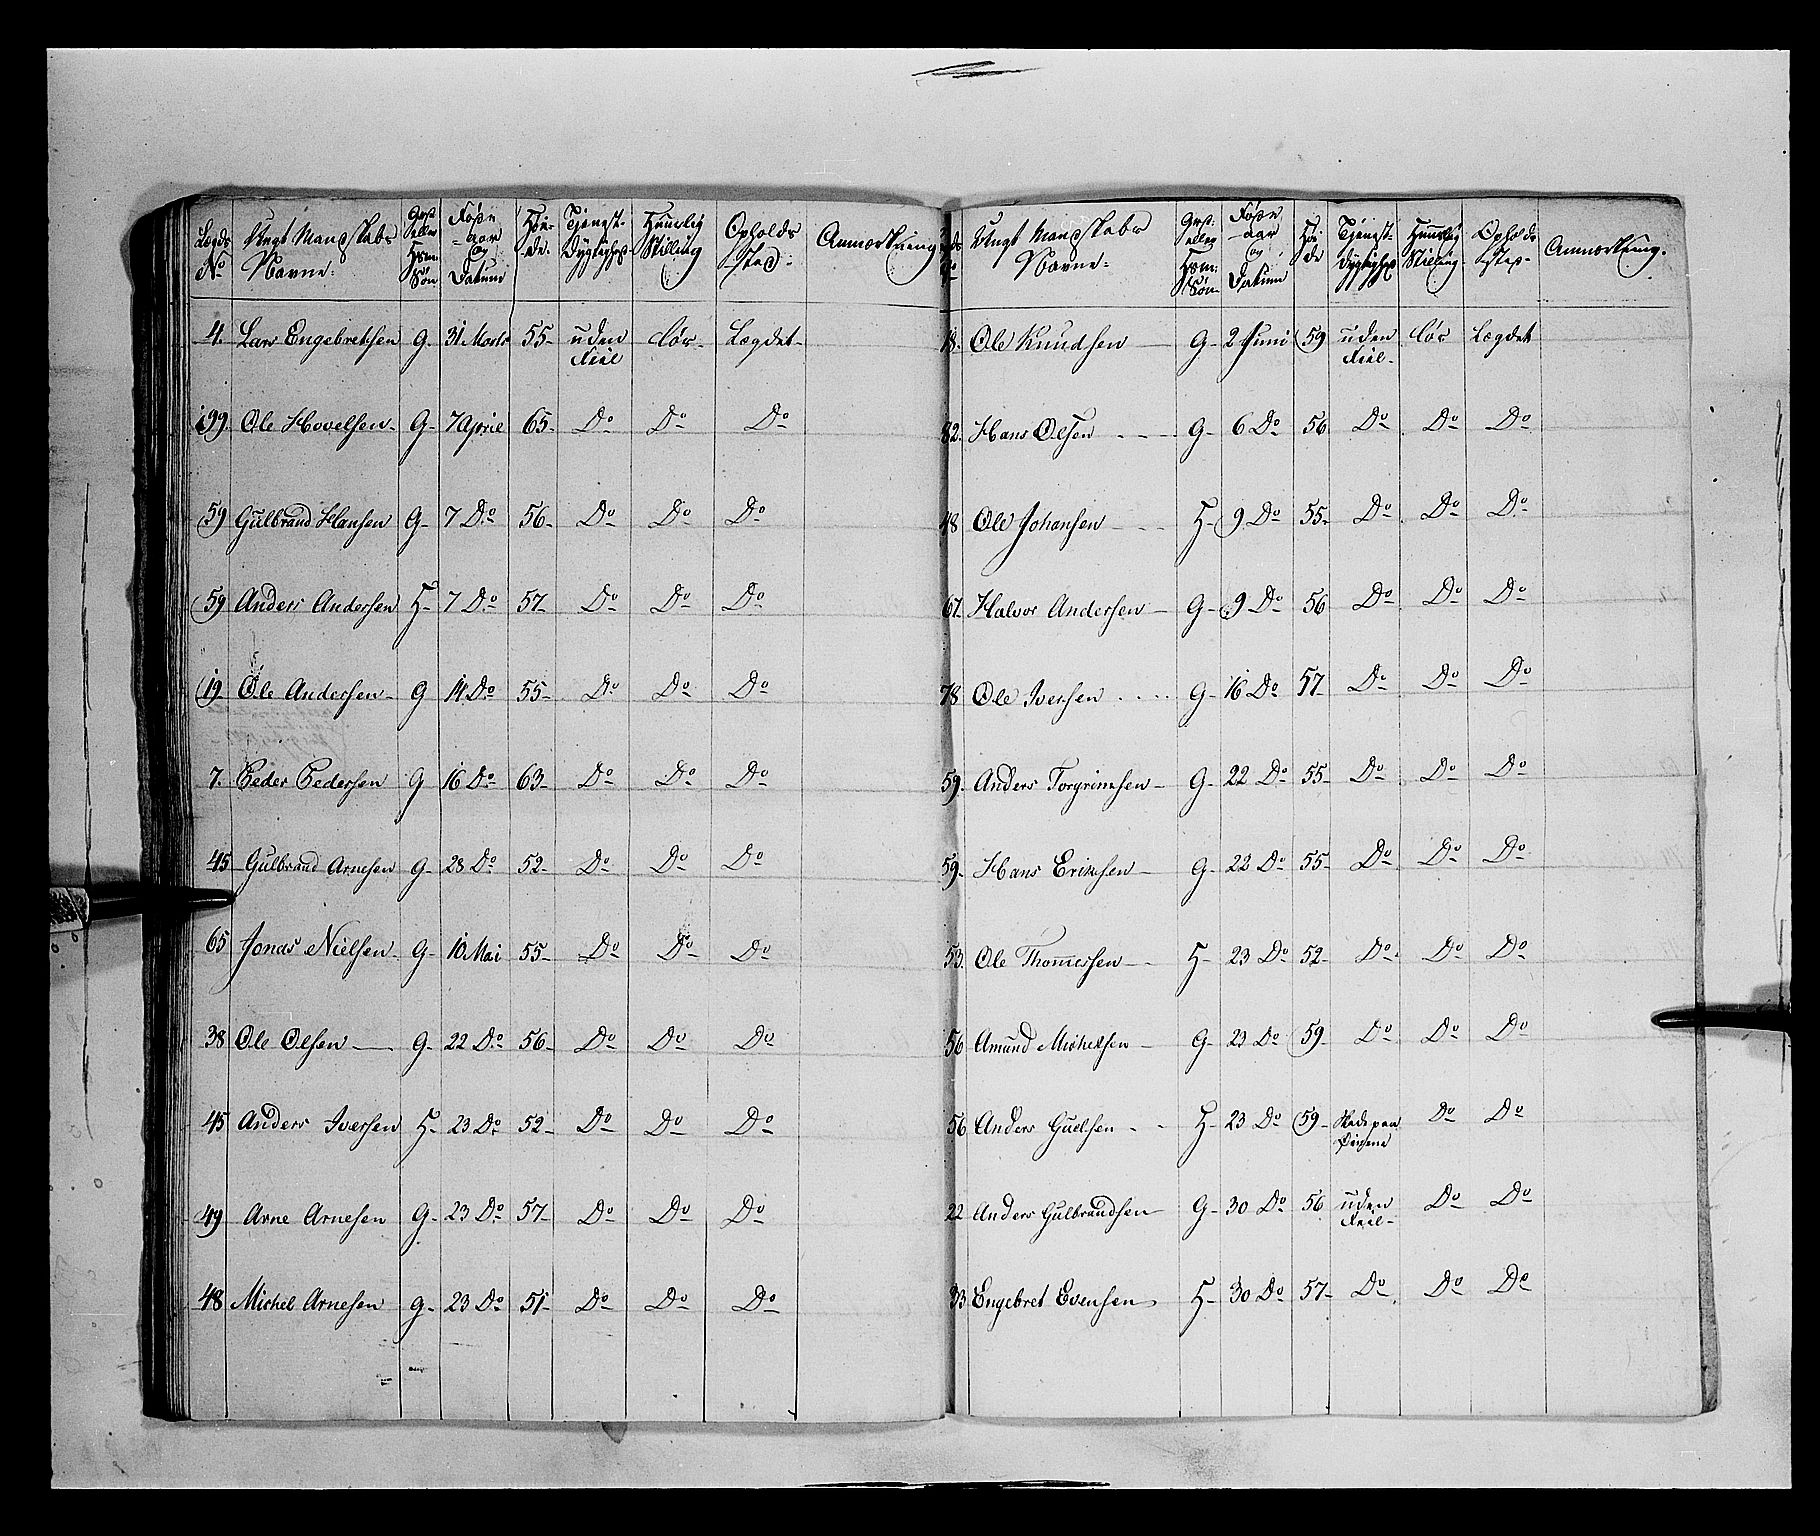 Lægds No | Ungt Mandskabs Navne: | Grd eller Hsm: Søn | Føde aar og Datum | Høi-de. | Tjenest-Dygtighed | Huuslig Stilling | Opholds sted | Anmærkning
4. Lars Engebretsen G- 31 Marts 55- uden Feil løs- Lægdet-
99. Ole Hovelsen- G- 7 April 65- Do Do Do
59 Gulbrand Hansen G- 7 Do 56- Do Do Do
59 Anders Andersen H- 7 Do 57- Do Do Do
19 Ole Andersen- G 14 Do 55- Do Do Do
7. Peder Pedersen G 16 Do 63- Do Do Do
45 Gulbrand Arnesen G- 28 Do 52- Do Do Do
65 Jonas Nielsen- G- 10 Mai 55- Do Do Do
38 Ole Olsen G- 22 Do 56- Do Do Do
45 Anders Iversen H- 23 Do 52- Do Do Do
49 Arne Arnesen G- 23 Do 57- Do Do Do
48 Michel Arnesen G- 23 Do 51- Do Do Do
Ungt Mandskabs Navne: | Grd. eller Hsm: Søn- | Føde aar og Datum | Høi de | Tjenest-Dygtighed | Huuslig Stilling- | Opholds sted- | Anmærkning.
18. Ole Knudsen G- 2 Juni 59 uden Feil- løs Lægdet
82. Hans Olsen G- 6 Do 56 Do Do Do
48 Ole Johansen H- 9 Do 55- Do Do Do
67. Halvor Andersen G- 9 Do 56 Do Do Do
78 Ole Iversen G- 16 Do 57- Do Do Do
59. Anders Torgrimsen G- 22 Do 55- Do Do Do
59. Hans Eriksen G- 22 Do 55- Do Do Do
53. Ole Thommesen H- 23 Do 52- Do Do Do
56 Amund Michelsen G- 23 Do 59- Do Do Do
56 Anders Guelsen H- 23 Do 59- Skade paa Do Do
22 Anders Gulbrandsen G- 30 Do 56 uden Feil- Do Do
33 Engebret Evensen H- 30 Do 57- Do Do Do